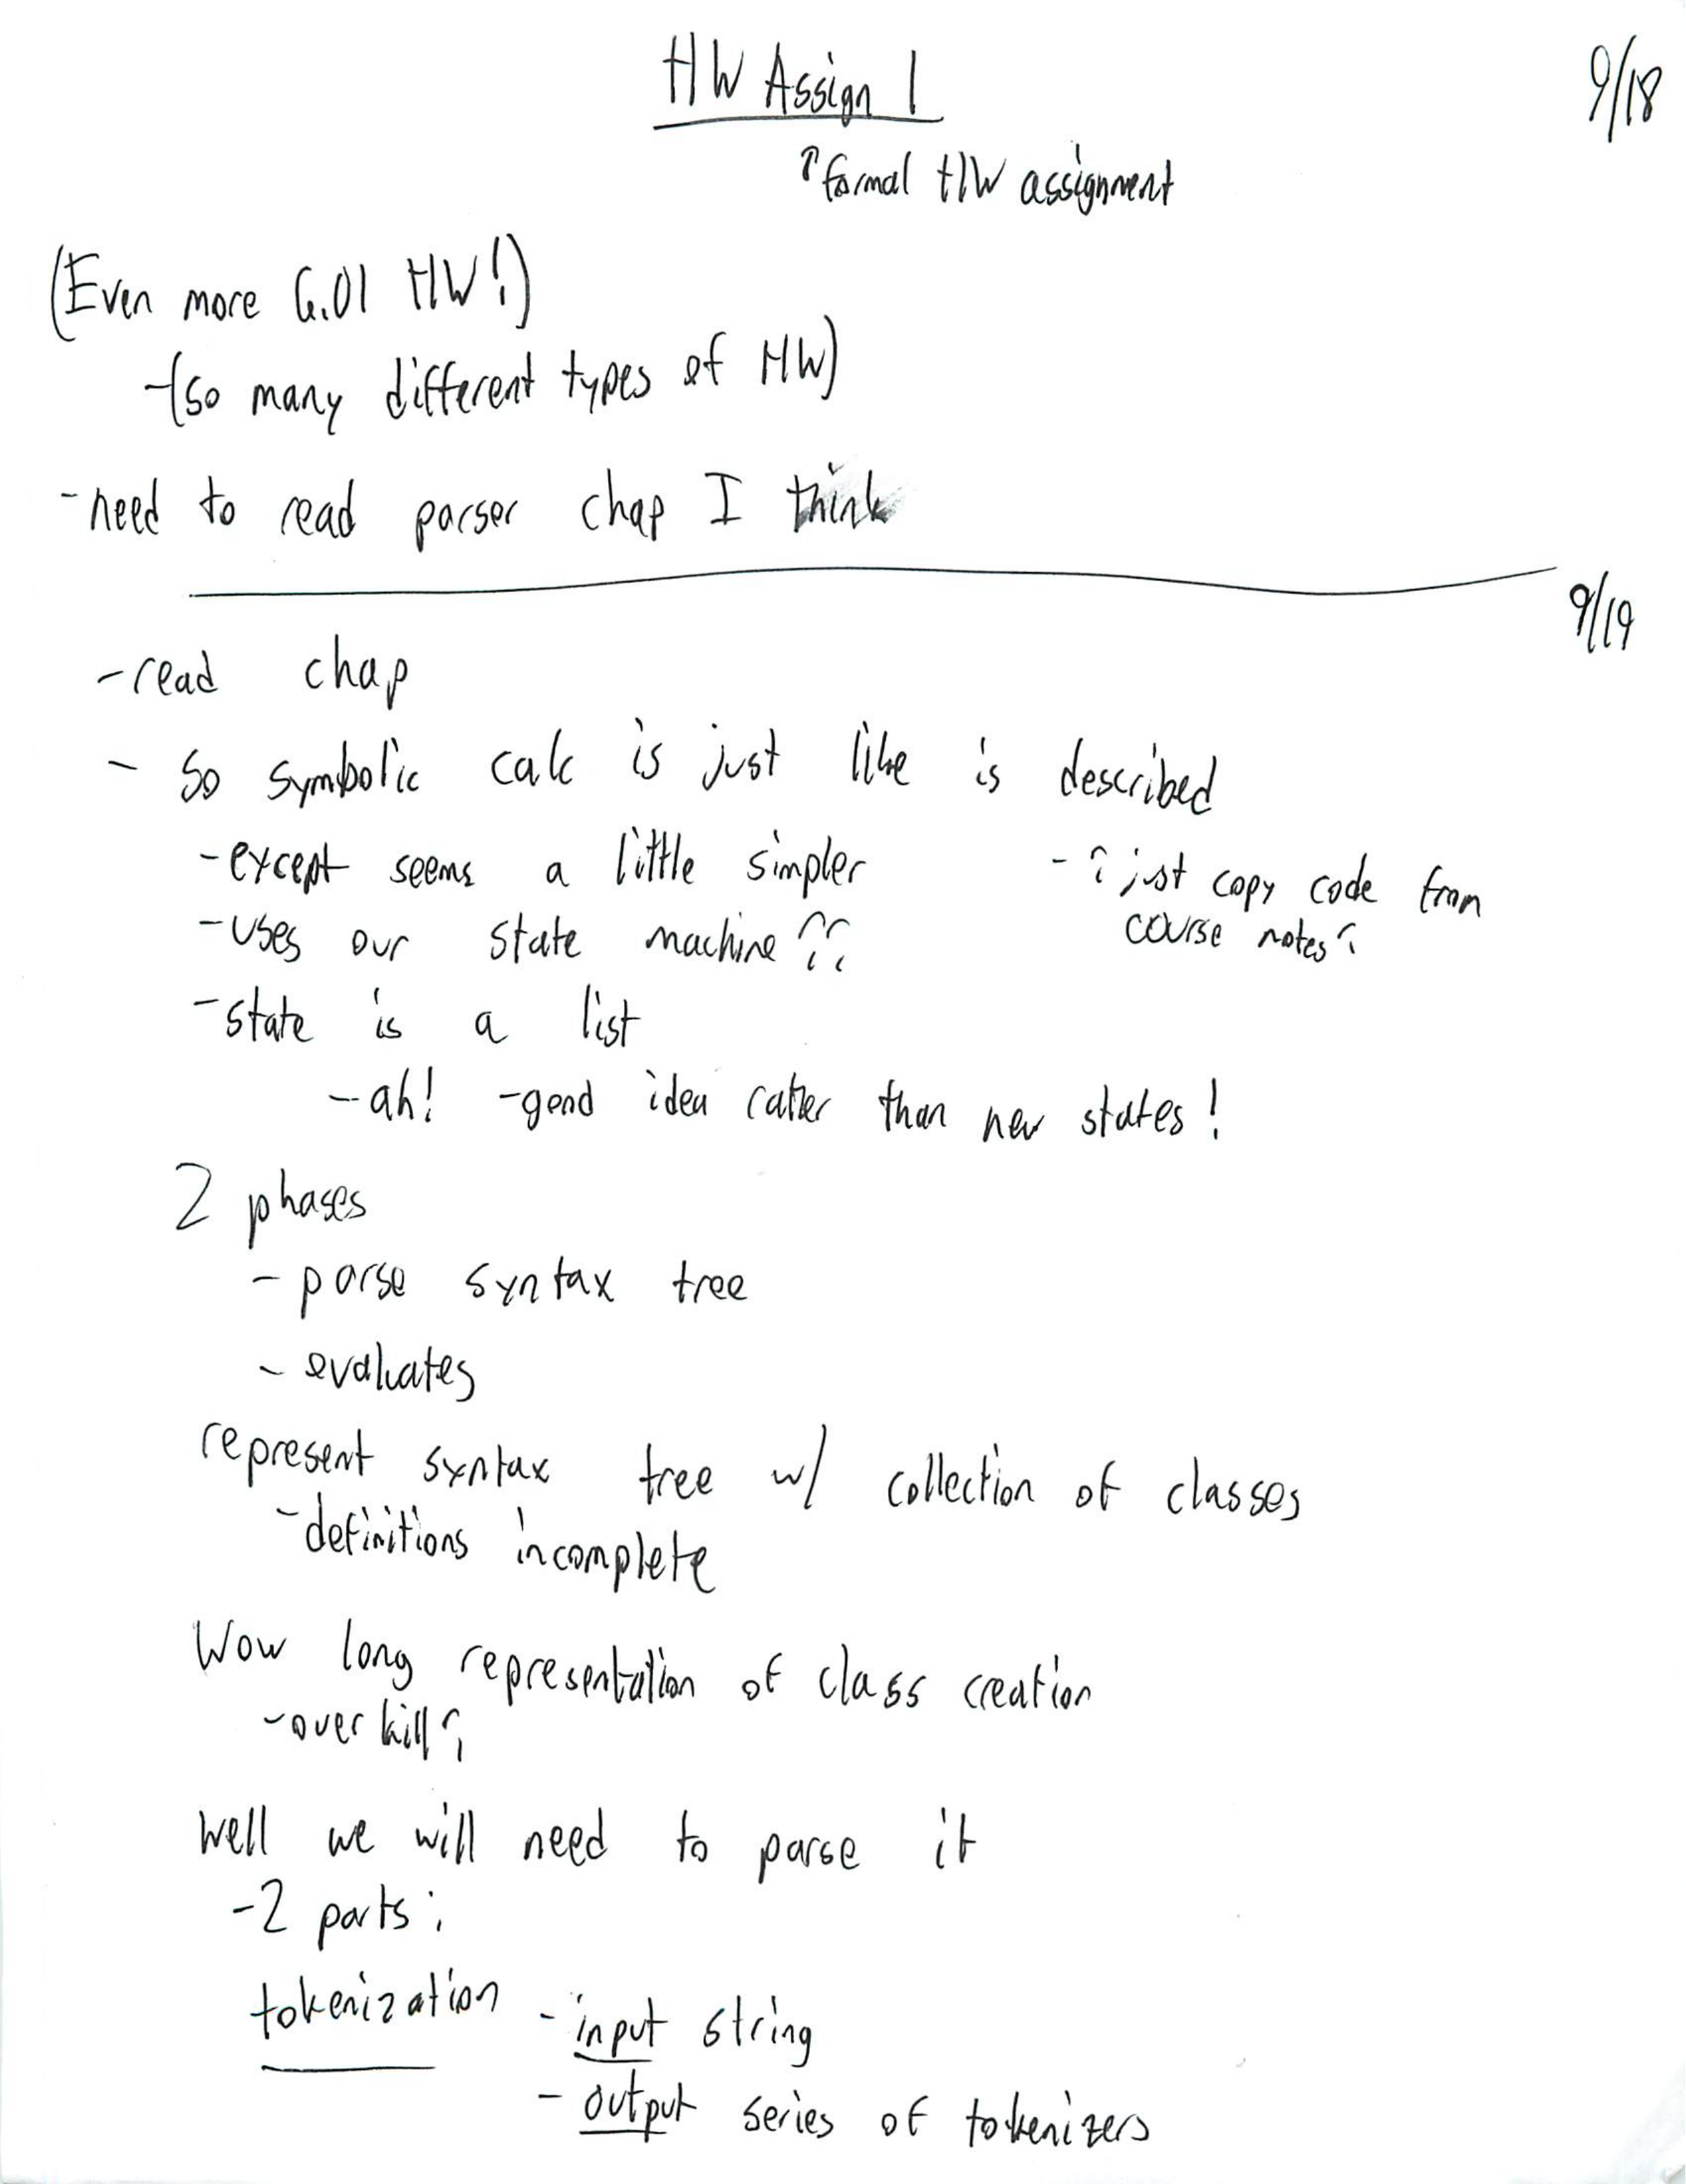 HW Assign 1
9/18
↑ formal HW assignment
(Even more 6.01 HW!)
-(so many different types of HW)
- need to read parser chap I think
9/19
- read chap
- so symbolic calc is just like is described
- except seems a little simpler
- ? just copy code from
course notes?
- uses our state machine??
- state is a list
- ah! - good idea rather than new states!
2 phases
- parse syntax tree
- evaluates
represent syntax tree w/ collection of classes
- definitions incomplete
Wow long representation of class creation
- over kill?
Well we will need to parse it
- 2 parts:
tokenization - input string
- output series of tokenizers